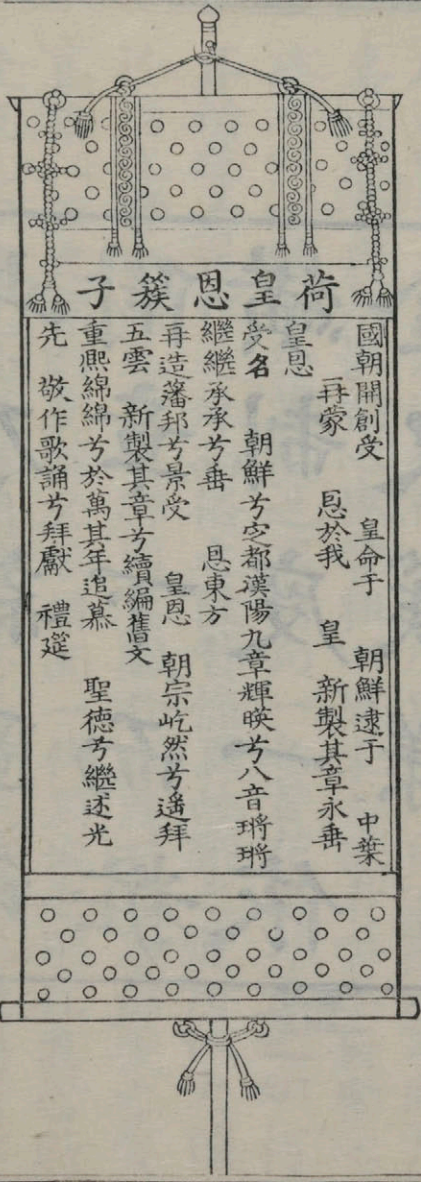 荷皇恩簇子
國朝開創受 皇命于 朝鮮逮于 中葉
再蒙 恩於我 皇 新製其章永垂
皇恩
受名 朝鮮兮定都漢陽九章輝暎兮八音瑒瑒
繼繼承承兮垂 恩東方
再造藩邦兮景受 皇恩 朝宗屹然兮遙拜
五雲 新製其章兮續編舊文
重熙綿綿兮於萬其年追慕 聖德兮繼述光
先 敬作歌誦兮拜獻 禮筵